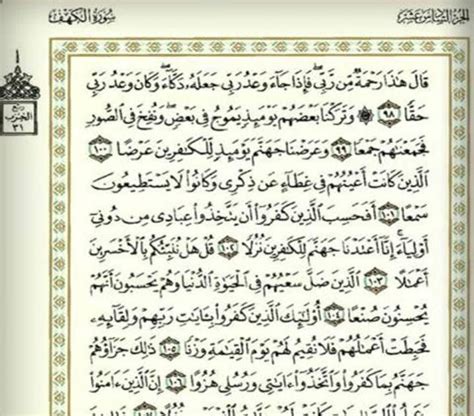 سُورَةُ الكَهْفِ
الجُزْءُ السَّادِسَ عَشَرَ
رُبْع
الحِزْب
٣١
قَالَ هَٰذَا رَحْمَةٌ مِّن رَّبِّي فَإِذَا جَآءَ وَعْدُ رَبِّي جَعَلَهُۥ دَكَّآءَ وَكَانَ وَعْدُ رَبِّي
حَقًّا ٩٨ ۞ وَتَرَكْنَا بَعْضَهُمْ يَوْمَئِذٍ يَمُوجُ فِي بَعْضٍ وَنُفِخَ فِي الصُّورِ
فَجَمَعْنَٰهُمْ جَمْعًا ٩٩ وَعَرَضْنَا جَهَنَّمَ يَوْمَئِذٍ لِّلْكَٰفِرِينَ عَرْضًا ١٠٠
الَّذِينَ كَانَتْ أَعْيُنُهُمْ فِي غِطَآءٍ عَن ذِكْرِي وَكَانُوا لَا يَسْتَطِيعُونَ
سَمْعًا ١٠١ أَفَحَسِبَ الَّذِينَ كَفَرُوا أَن يَتَّخِذُوا عِبَادِي مِن دُونِي
أَوْلِيَآءَ إِنَّا أَعْتَدْنَا جَهَنَّمَ لِلْكَٰفِرِينَ نُزُلًا ١٠٢ قُلْ هَلْ نُنَبِّئُكُم بِالْأَخْسَرِينَ
أَعْمَٰلًا ١٠٣ الَّذِينَ ضَلَّ سَعْيُهُمْ فِي الْحَيَوٰةِ الدُّنْيَا وَهُمْ يَحْسَبُونَ أَنَّهُمْ
يُحْسِنُونَ صُنْعًا ١٠٤ أُولَٰئِكَ الَّذِينَ كَفَرُوا بِـَٔايَٰتِ رَبِّهِمْ وَلِقَآئِهِۦ
فَحَبِطَتْ أَعْمَٰلُهُمْ فَلَا نُقِيمُ لَهُمْ يَوْمَ الْقِيَٰمَةِ وَزْنًا ١٠٥ ذَٰلِكَ جَزَآؤُهُمْ
جَهَنَّمُ بِمَا كَفَرُوا وَاتَّخَذُوا ءَايَٰتِي وَرُسُلِي هُزُوًا ١٠٦ إِنَّ الَّذِينَ ءَامَنُوا